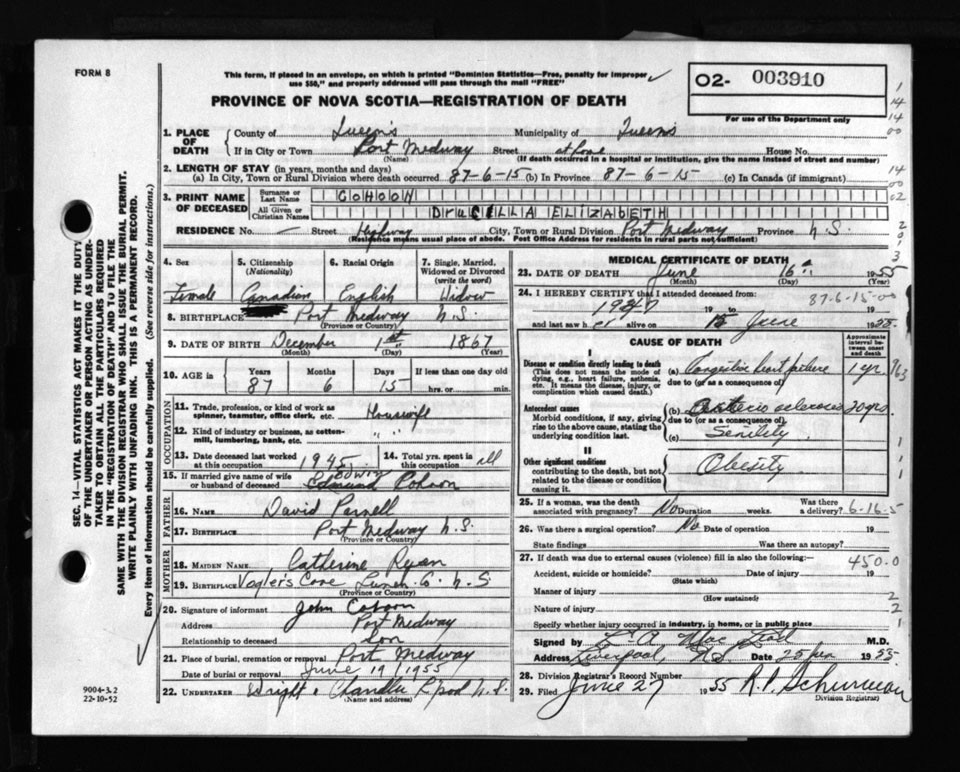 FORM 8
This form, if placed in an envelope, on which is printed "Dominion Statistics—Free, penalty for improper
use $50," and properly addressed will pass through the mail "FREE"
O2- 003910
For use of the Department only
PROVINCE OF NOVA SCOTIA—REGISTRATION OF DEATH
1. PLACE OF DEATH County of Queens Municipality of Queens
If in City or Town Port Medway Street at home House No.
(Name) (If death occurred in a hospital or institution, give the name instead of street and number)
2. LENGTH OF STAY (in years, months and days)
(a) In City, Town or Rural Division where death occurred 87-6-15 (b) In Province 87-6-15 (c) In Canada (if immigrant)
3. PRINT NAME OF DECEASED Surname or Last Name COHOON
All Given or Christian Names DRUCILLA ELIZABETH
RESIDENCE No. — Street Highway City, Town or Rural Division Port Medway Province N.S.
(Residence means usual place of abode. Post Office Address for residents in rural parts not sufficient)
4. Sex 5. Citizenship (Nationality) 6. Racial Origin 7. Single, Married, Widowed or Divorced (write the word)
Female Canadian English Widow
8. BIRTHPLACE Port Medway N.S.
(Province or Country)
9. DATE OF BIRTH December 1st 1867
(Month) (Day) (Year)
10. AGE in Years Months Days If less than one day old
87 6 15 hrs. or min.
OCCUPATION
11. Trade, profession, or kind of work as spinner, teamster, office clerk, etc. Housewife
12. Kind of industry or business, as cotton-mill, lumbering, bank, etc. " "
13. Date deceased last worked at this occupation 1945 14. Total yrs. spent in this occupation all
15. If married give name of wife or husband of deceased Edmund EDWIN Cohoon
FATHER
16. NAME David Parnell
17. BIRTHPLACE Port Medway N.S.
(Province or Country)
MOTHER
18. MAIDEN NAME Catherine Ryan
19. BIRTHPLACE Vogler's Cove Lunen. C. N.S
(Province or Country)
20. Signature of informant John Cohoon
Address Port Medway
Relationship to deceased Son
21. Place of burial, cremation or removal Port Medway
Date of burial or removal June 19/1955
22. UNDERTAKER Wright & Chandler L'pool N.S.
(Name and address)
MEDICAL CERTIFICATE OF DEATH
23. DATE OF DEATH June 16th 1955
(Month) (Day) (Year)
24. I HEREBY CERTIFY that I attended deceased from
87-6-15-00
1947 19 to 19
and last saw her alive on 15 June 1955.
CAUSE OF DEATH
Approximate interval between onset and death
I
Disease or condition directly leading to death
(This does not mean the mode of dying, e.g., heart failure, asthenia, etc. It means the disease, injury, or complication which caused death.)
(a) Congestive heart failure 1 yr.
due to (or as a consequence of)
Antecedent causes
Morbid conditions, if any, giving rise to the above cause, stating the underlying condition last.
(b) Arterio sclerosis 20 yrs.
due to (or as a consequence of)
(c) Senility
II
Other significant conditions
contributing to the death, but not related to the disease or condition causing it.
Obesity
25. If a woman, was the death associated with pregnancy? No Duration weeks. Was there a delivery?
6-16-5
26. Was there a surgical operation? No Date of operation 19
State findings Was there an autopsy?
27. If death was due to external causes (violence) fill in also the following:-
450.0
Accident, suicide or homicide? Date of injury 19
(State which)
Manner of injury
(How sustained)
Nature of injury
Specify whether injury occurred in industry, in home, or in public place
Signed by M.D.
Address Liverpool, NS Date 25 1955.
28. Division Registrar's Record Number
29. Filed June 27 1955 R.P. Schurman
Division Registrar
SEC. 14—VITAL STATISTICS ACT MAKES IT THE DUTY
OF THE UNDERTAKER OR PERSON ACTING AS UNDER-
TAKER TO OBTAIN ALL THE PARTICULARS REQUIRED
IN THE "REGISTRATION OF DEATH" AND TO FILE THE
SAME WITH THE DIVISION REGISTRAR WHO SHALL ISSUE THE BURIAL PERMIT.
WRITE PLAINLY WITH UNFADING INK. THIS IS A PERMANENT RECORD.
Every item of information should be carefully supplied. (See reverse side for instructions.)
9004-3.2
22-10-52